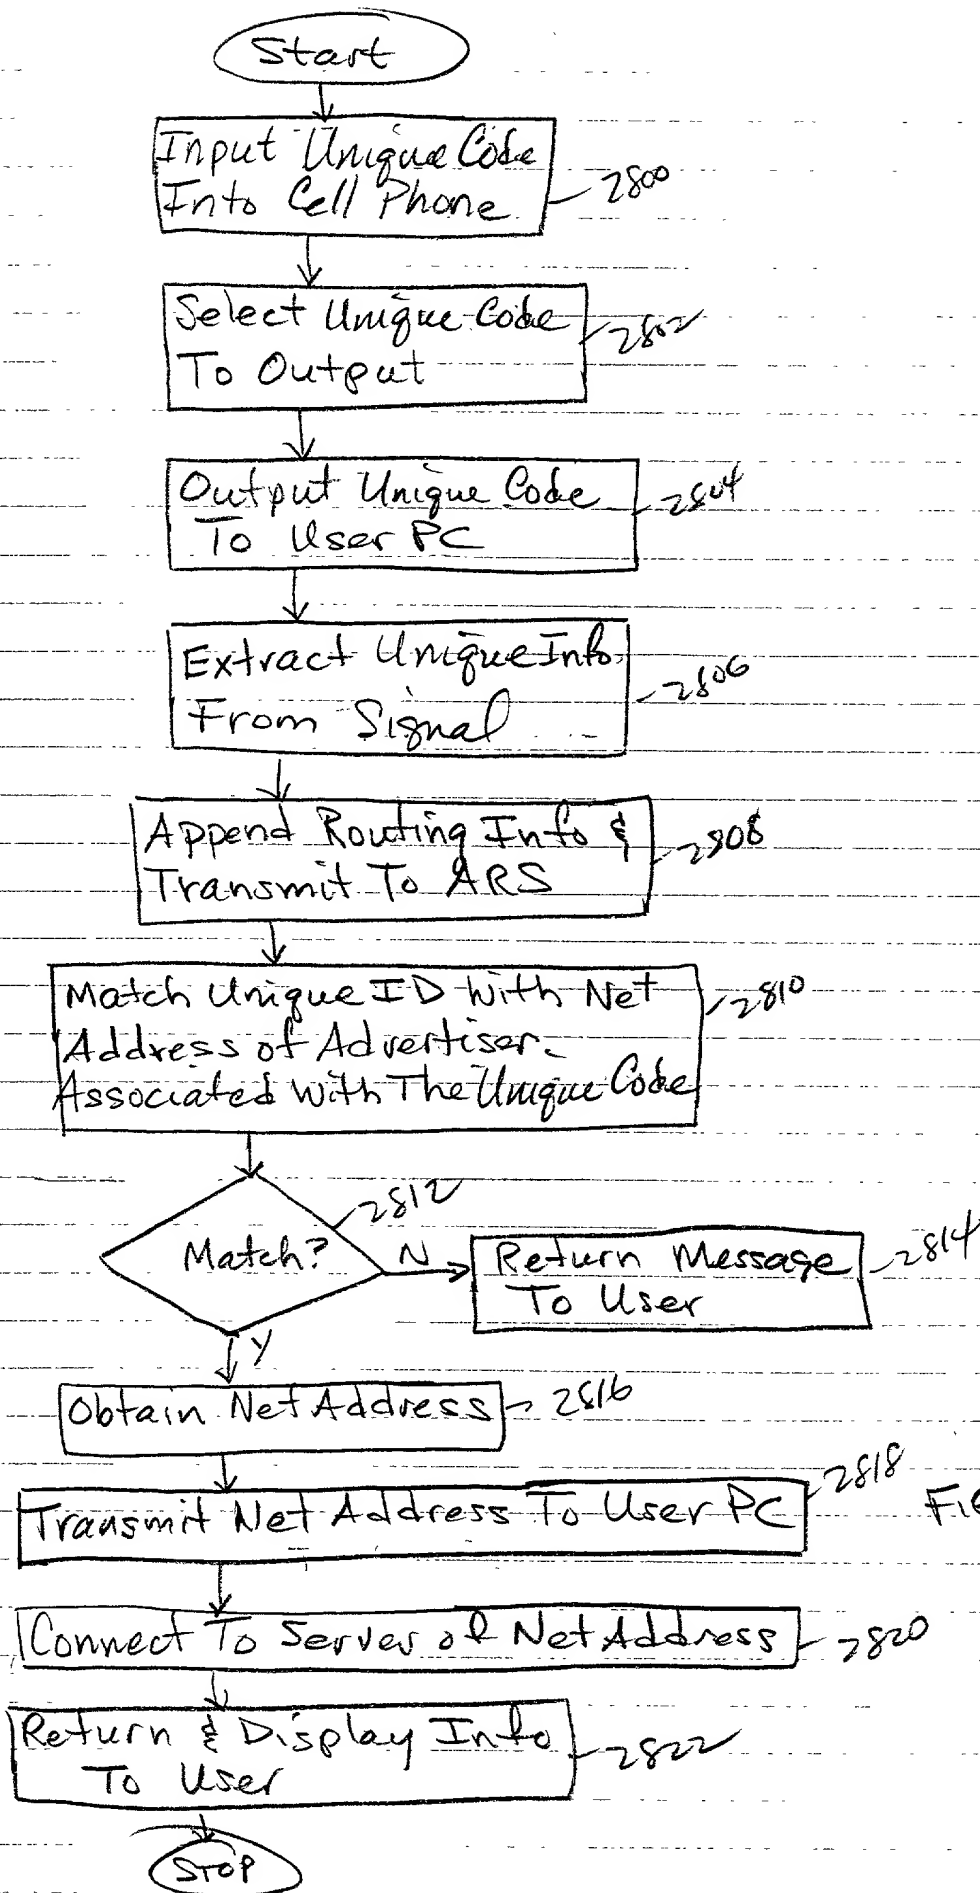 Start
Input Unique Code
Into Cell Phone
2800
Select Unique Code
To Output
2802
Output Unique Code
To User PC
2804
Extract Unique Info
From Signal
2806
Append Routing Info &
Transmit To ARS
2808
Match Unique ID With Net
Address of Advertiser
Associated With The Unique Code
2810
Match?
2812
N
Return Message
To User
2814
Y
Obtain Net Address
2816
Transmit Net Address To User PC
2818
Connect To Server of Net Address
2820
Return & Display Info
To User
2822
STOP